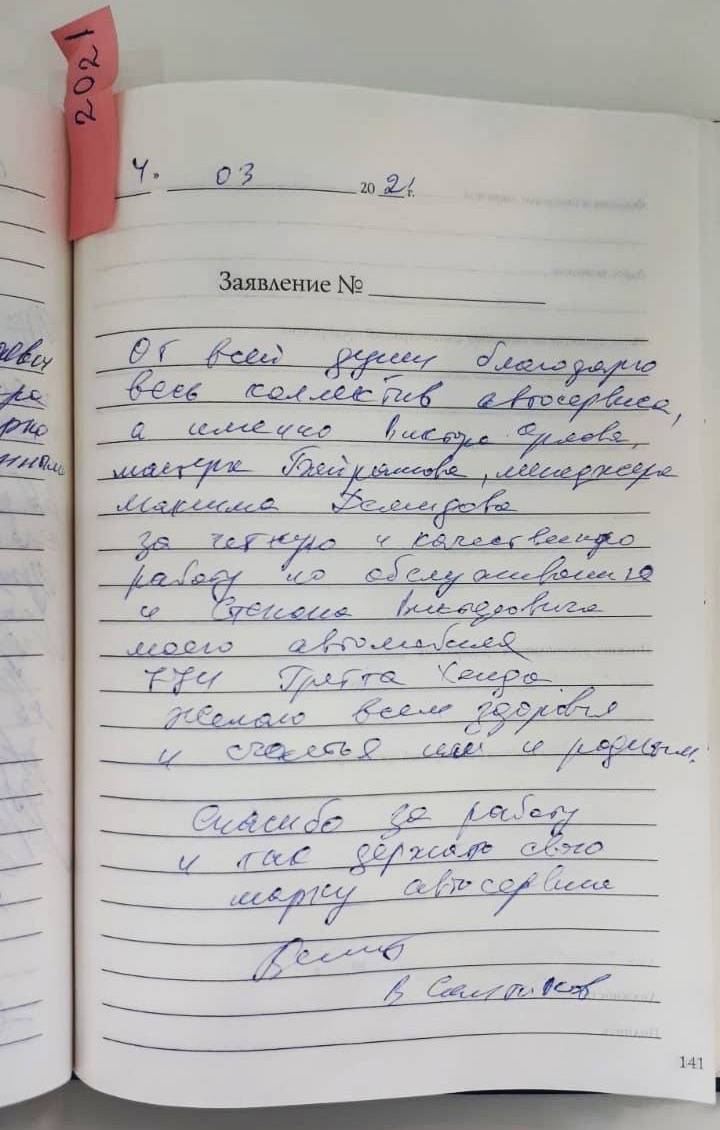 2021
4. 03 2021 г.
Заявление №
От всей души благодарю
весь коллектив автосервиса,
а именно Виктора Орлова,
мастера Байрамова, менеджера
Максима Демидова
за четкую и качественную
работу по обслуживанию
и Степана Викторовича
моего автомобиля
Гретта Хенда
Желаю всем здоровья
и счастья им и родным.
Спасибо за работу
и так держать свою
марку автосервиса
В
141